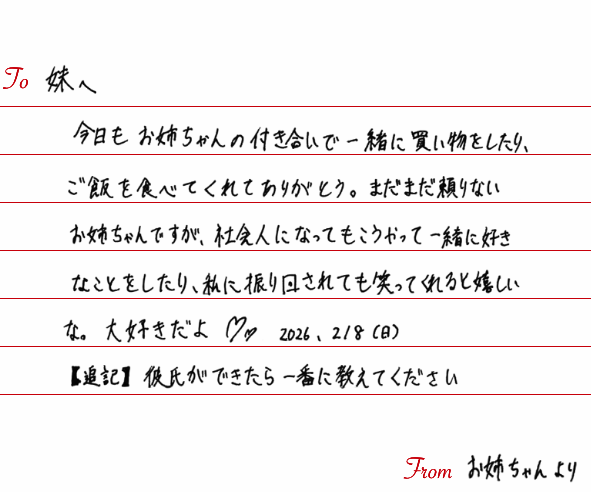 To 妹へ
今日も お姉ちゃんの付き合いで一緒に買い物をしたり、
ご飯を食べてくれてありがとう。まだまだ頼りない
お姉ちゃんですが、社会人になってもこうやって一緒に好き
なことをしたり、私に振り回されても笑ってくれると嬉しい
な。大好きだよ ♡♡ 2026、2/8（日）
【追記】彼氏ができたら一番に教えてください
From お姉ちゃんより